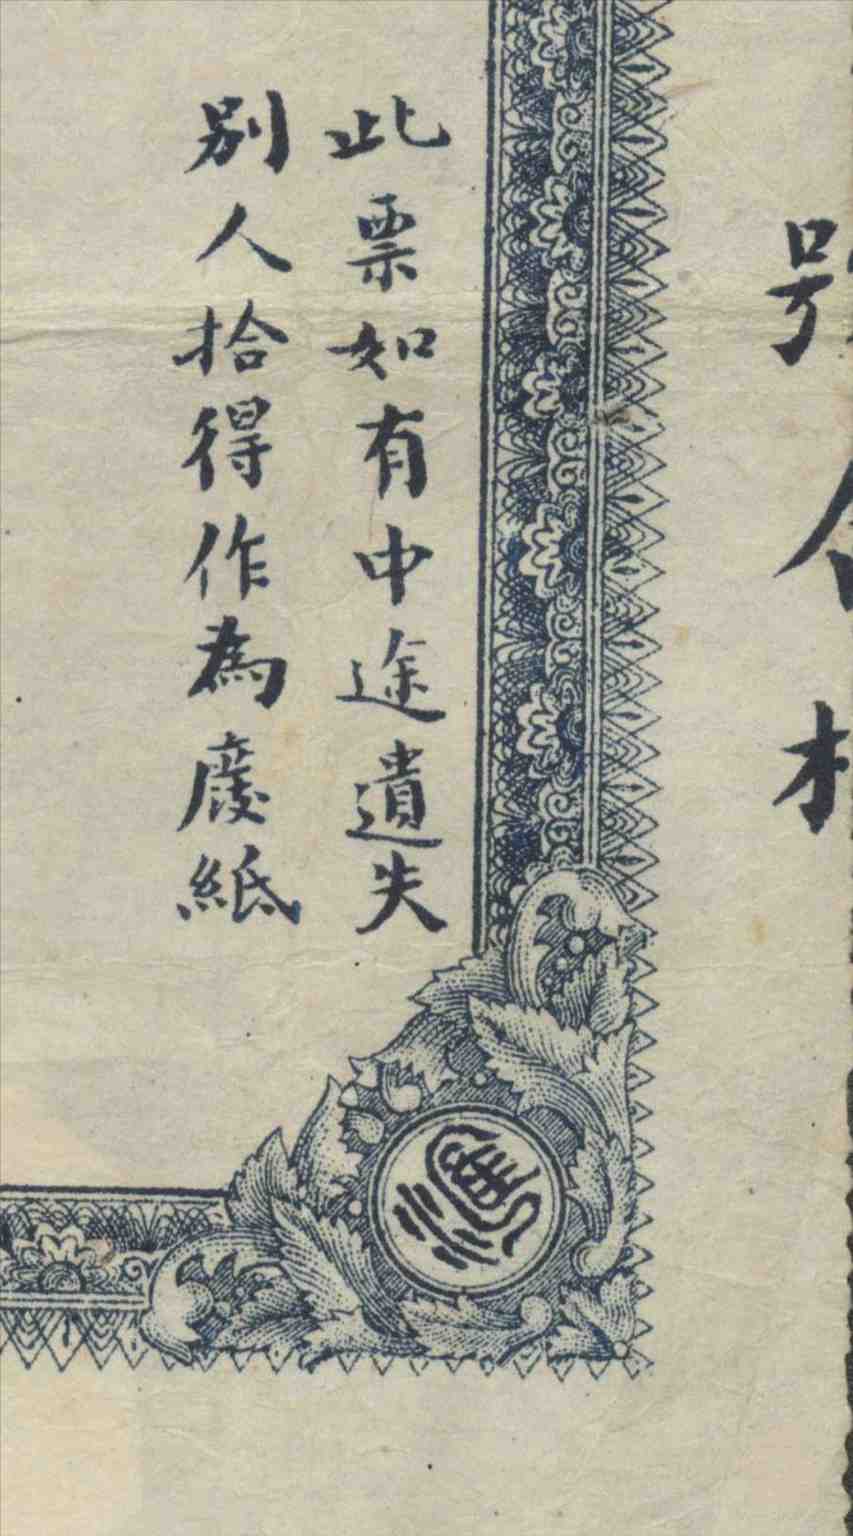 此票如有中途遺失
別人拾得作為廢紙